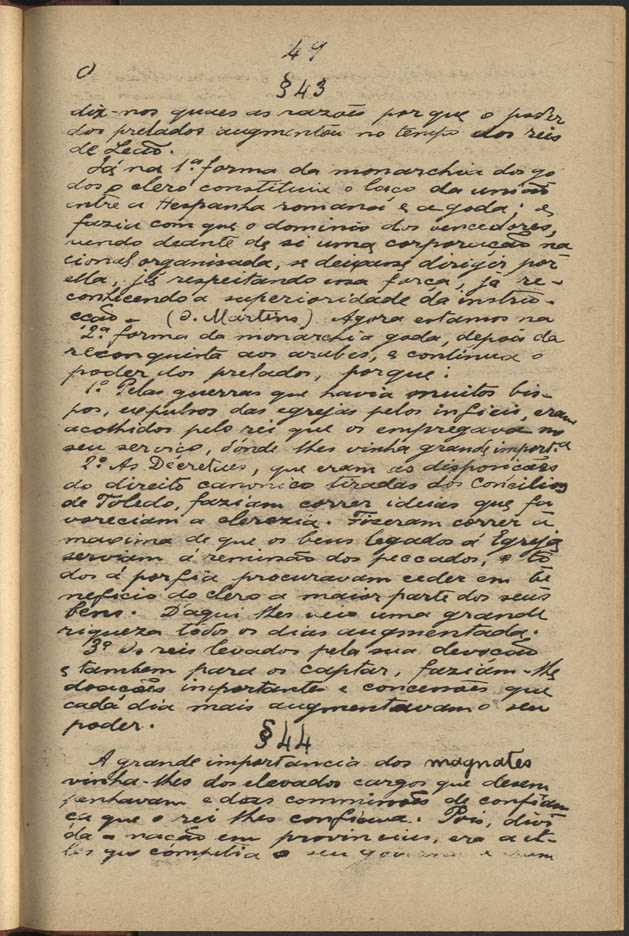 49
O
§ 43
diz-nos quaes as razões porque o poder
dos prelados augmentou no tempo dos reis
de Leão.
Já na 1.ª forma da monarchia dos go-
dos o clero constituia o laço da união
entre a Hespanha romana e a goda; e
fazia com que o dominio dos vencedores,
vendo deante de si uma corporação na
cional organisada, se deixasse dirigir por
ella, já respeitando essa força, já re-
conhecendo a superioridade da instru-
cção. (O. Martins) Agora estamos na
2.ª forma da monarchia goda, depois da
reconquista aos arabes, e continua o
poder dos prelados, porque:
1.º Pelas guerras que havia muitos bis-
pos, expulsos das egrejas pelos infieis, eram
acolhidos pelo rei que os empregava no
seu serviço, d'onde lhes vinha grande import.ª
2.º As Decretaes, que eram as disposições
do direito canonico tiradas dos Concilios
de Toledo, faziam correr ideias que fa
voreciam a clerezia. Fizeram correr a
maxima de que os bens legados á Egreja
serviam á remissão dos peccados, e to
dos á porfia procuravam ceder em be
neficio do clero a maior parte dos seus
bens. D'aqui lhes veio uma grande
riqueza todos os dias augmentada.
3.º Os reis levados pela sua devoção
e tambem para os captar, faziam-lhe
doações importantes e concessões que
cada dia mais augmentavam o seu
poder.
§ 44
A grande importancia dos magnates
vinha-lhes dos elevados cargos que desem
penhavam e das commissões de confian
ça que o rei lhes confiava. Pois, divi
da a nação em provincias, era a el-
les que competia o seu governo e